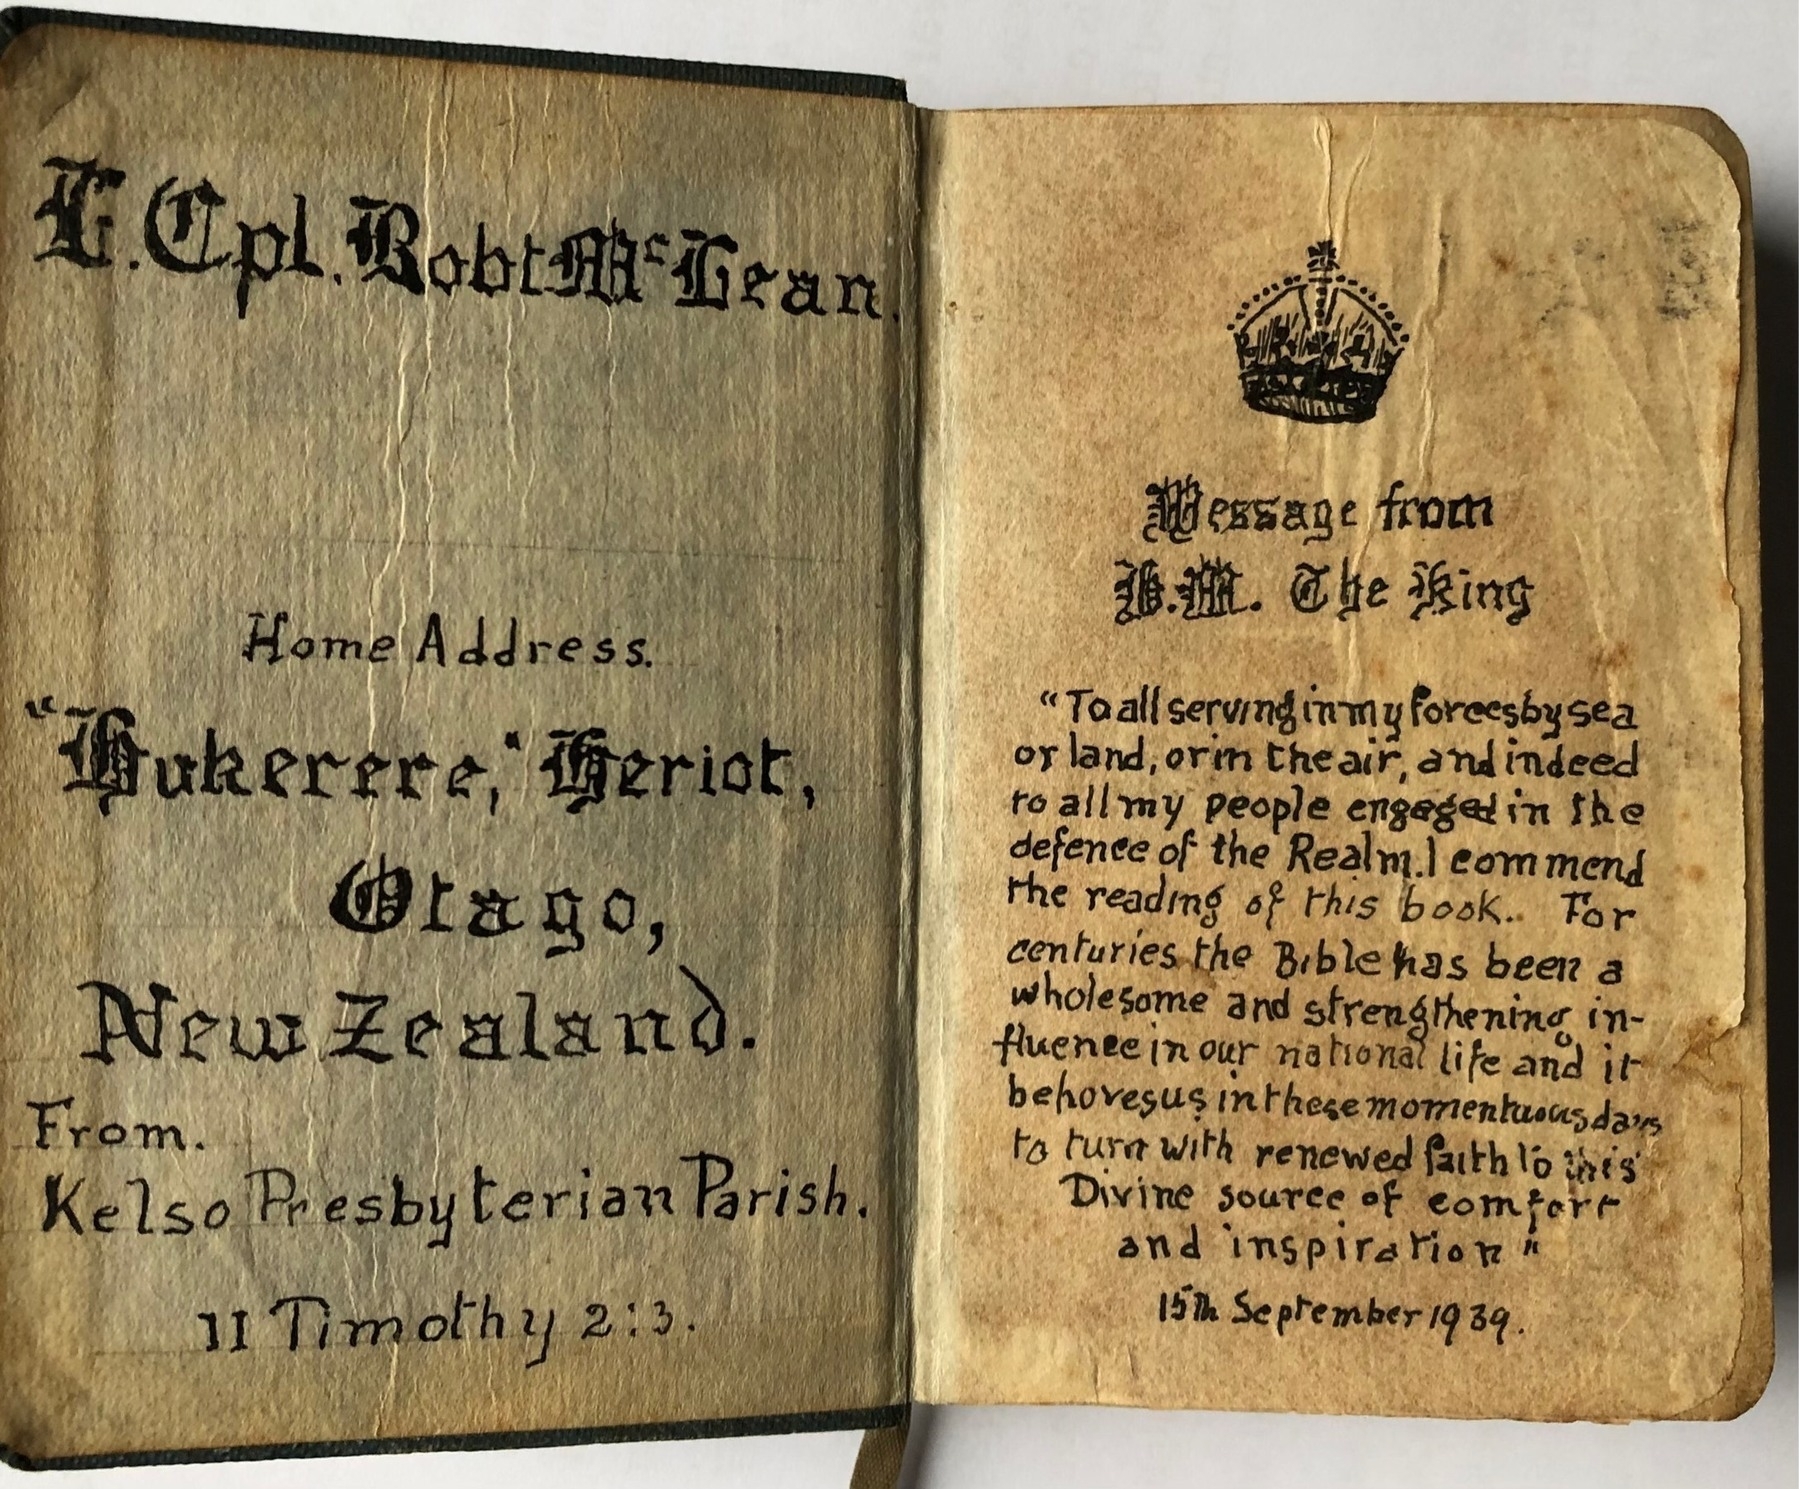 L.Cpl. Robt McLean.
Home Address.
"Hukerere," Heriot,
Otago,
New Zealand.
From.
Kelso Presbyterian Parish.
II Timothy 2:3.
Message from
H.M. The King
"To all serving in my forces by sea
or land, or in the air, and indeed
to all my people engaged in the
defence of the Realm. I commend
the reading of this book. For
centuries the Bible has been a
wholesome and strengthening in-
fluence in our national life and it
behoves us in these momentuous days
to turn with renewed faith to this
Divine source of comfort
and inspiration"
15th September 1939.